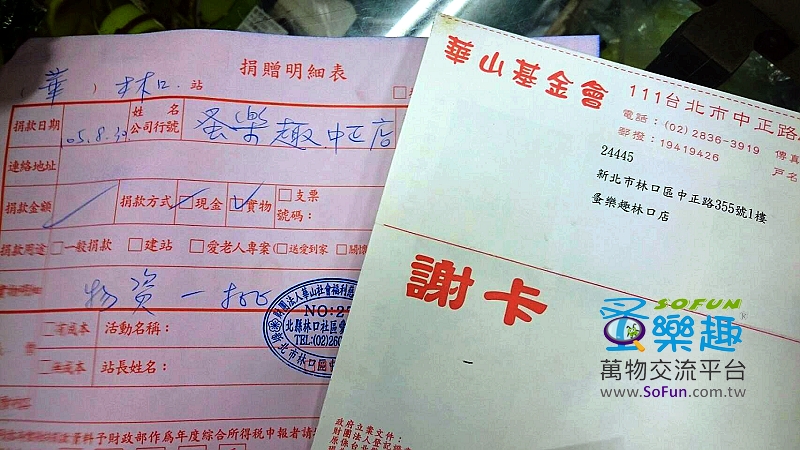 捐贈明細表
(華) 林口 站
捐款日期 05.8.30 姓名 公司行號 蚤樂趣中正店
連絡地址
捐款金額 捐款方式 □現金 □實物 □支票 號碼：
捐款用途 □一般捐款 □建站 □愛老人專案(□送愛到家 □關懷
實物明細 物資一批
□有成本 活動名稱：
□無成本 站長姓名：
資料予財政部作為年度綜合所得稅申報者請
財團法人華山社會福利
NO:27
北縣林口社區
TEL:(02)260
新北市林口區中
華山基金會 111台北市中正路
電話：(02) 2836-3919 傳真
郵撥：19419426 戶名
24445
新北市林口區中正路355號1樓
蚤樂趣林口店
謝卡
政府立案文件：
財團法人登記
原係台北
SOFUN
蚤樂趣®
萬物交流平台
www.SoFun.com.tw